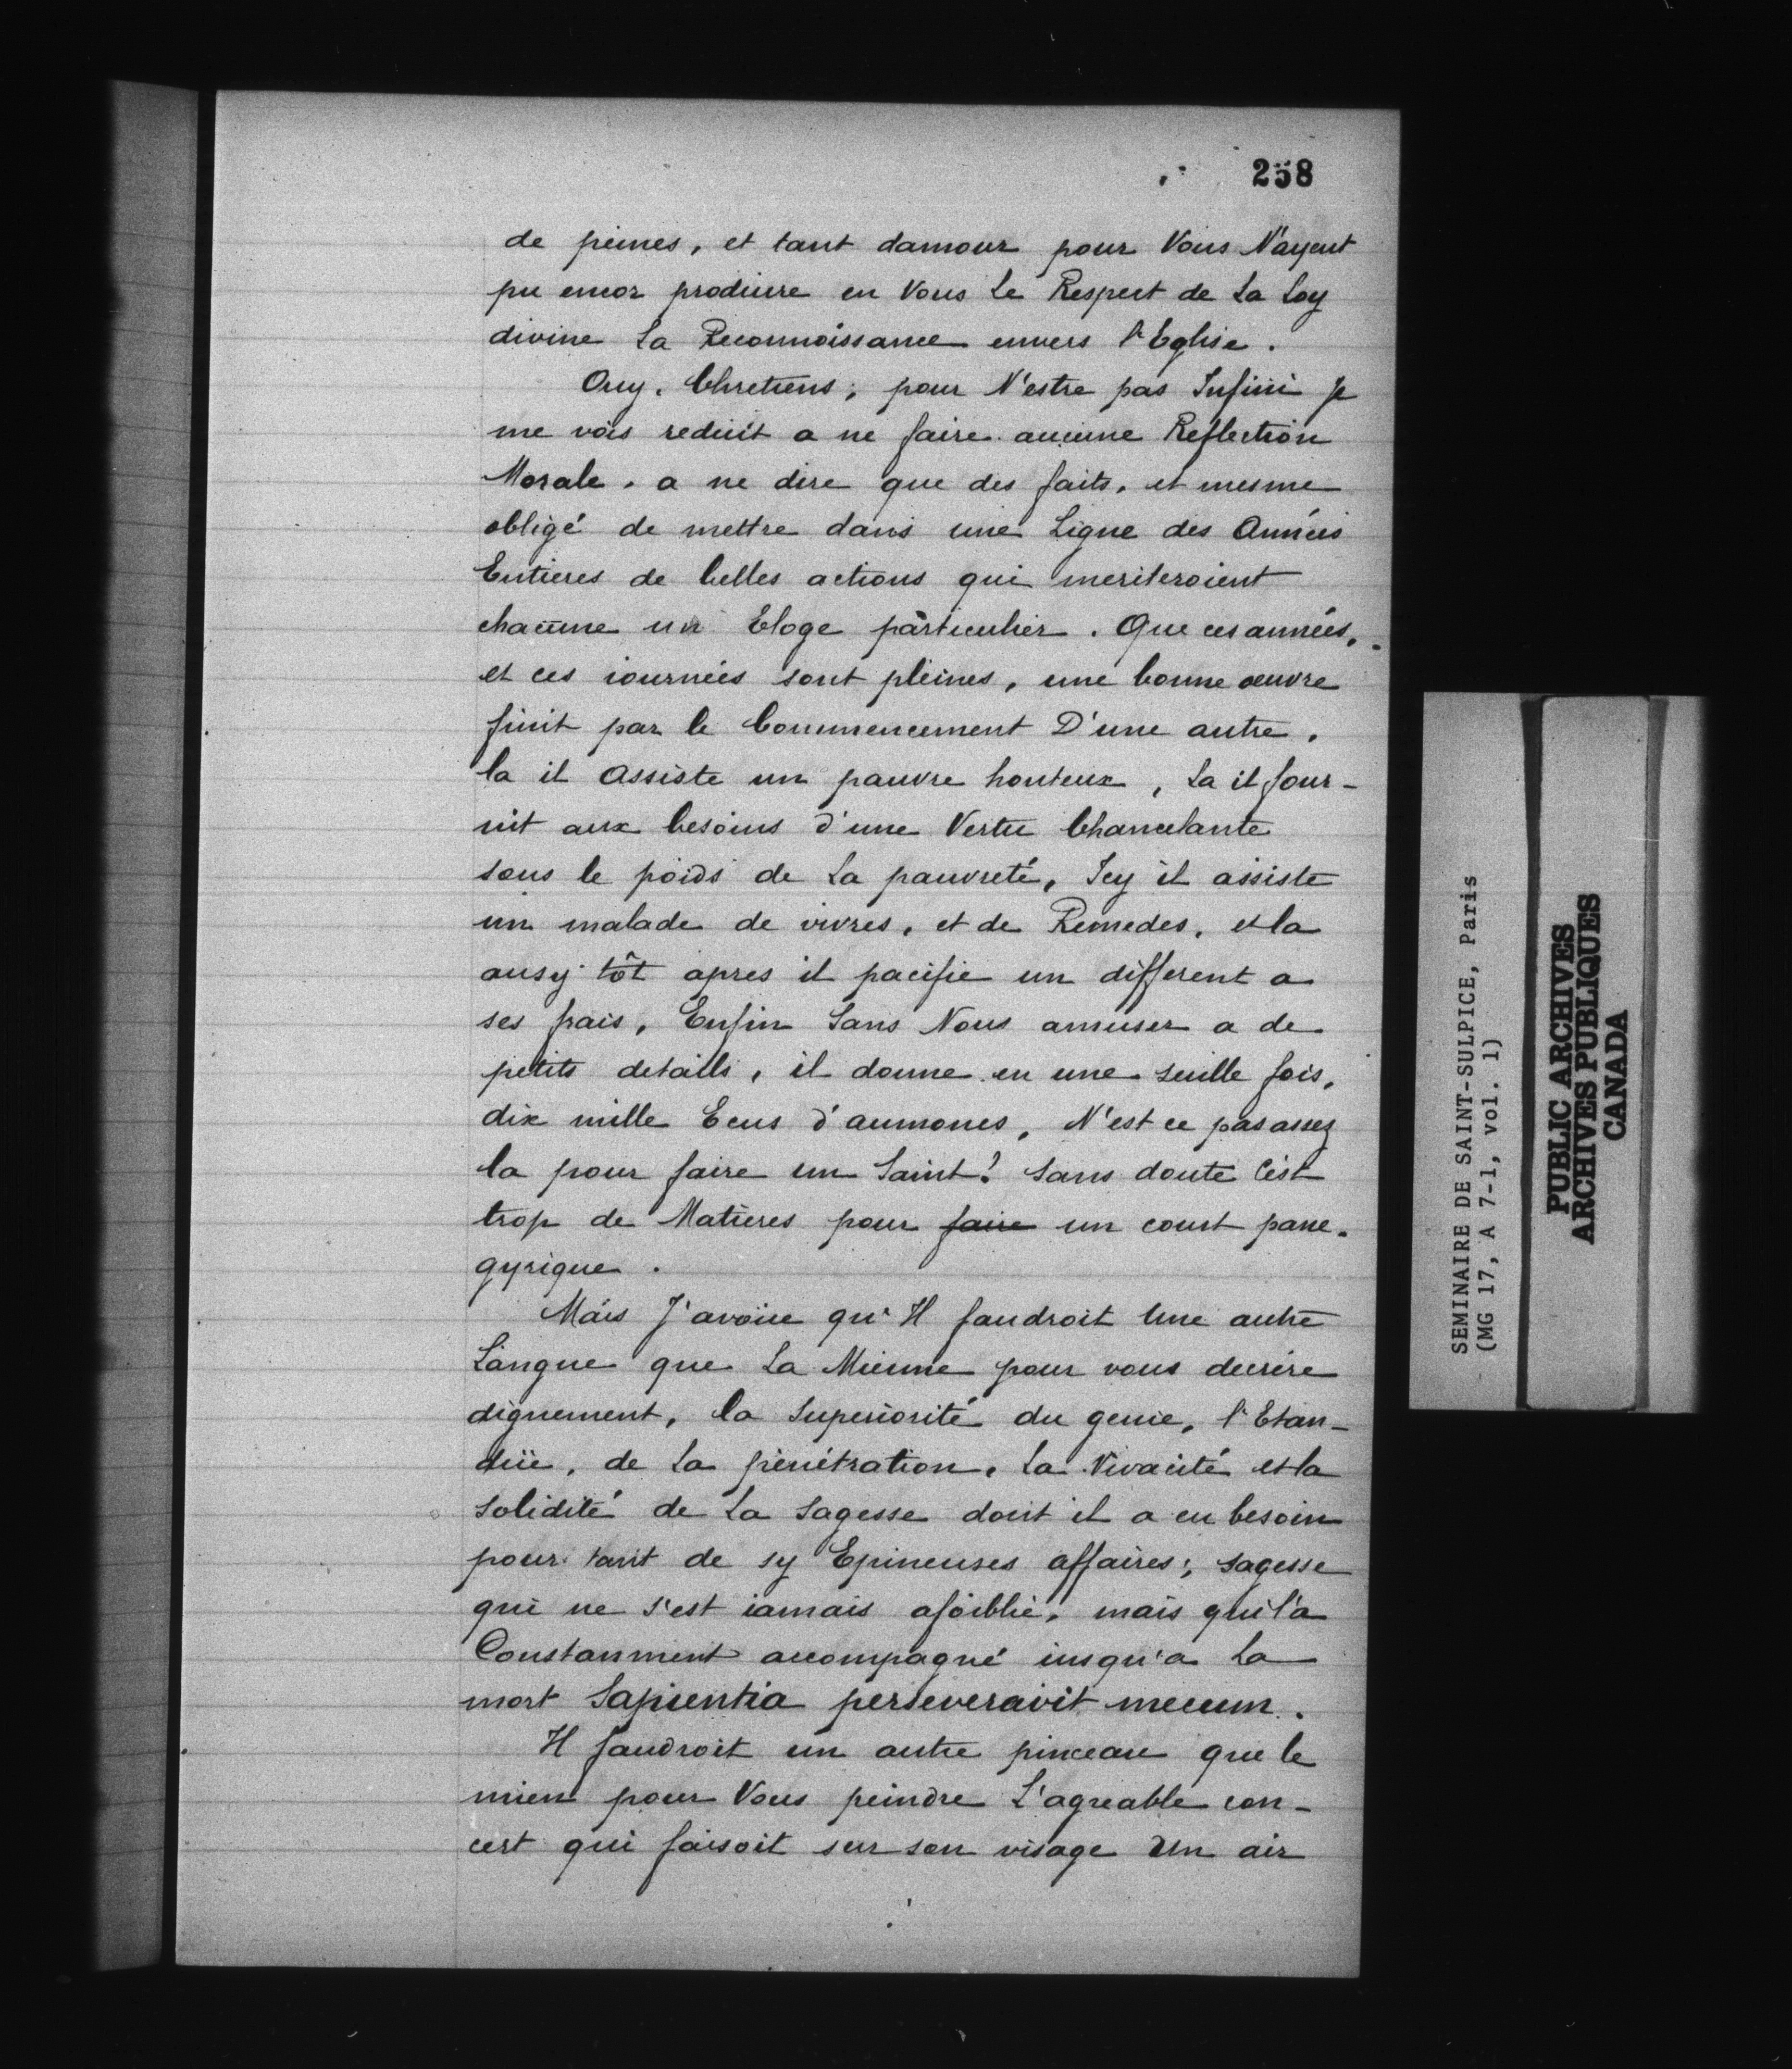 258
de peines, et tant damour pour Vous N'ayent
pu encor produire en Vous Le Respect de La Loy
divine La Reconnoissance envers l'Eglise.
Ouy, Chretiens, pour N'estre pas Infini Je
me vois reduit a ne faire aucune Reflection
Morale, a ne dire que des faits, et mesme
obligé de mettre dans une Ligne des Années
Entieres de belles actions qui meriteroient
chacune un Eloge particulier. Que ces années,
et ces iournées sont pleines, une bonne œuvre
finit par le Commencement D'une autre,
la il Assiste un pauvre honteux, La il four-
nit aux besoins d'une Vertu Chancelante
sous le poids de La pauvreté, Icy il assiste
un malade de vivres, et de Remedes, et la
ausy tôt apres il pacifie un different a
ses frais, Enfin Sans Nous amuser a de
petits details, il donne en une seulle fois,
dix mille Ecus d'aumones, N'est ce pas assez
la pour faire un Saint? Sans doute C'est
trop de Matieres pour faire un court pane-
gyrique.
Mais J'avoüe qu'Il faudroit Une autre
Langue que La Mienne pour vous decrire
dignement, la Superiorité du genie, l'Etan-
düe, de La pénétration, La Vivacité et la
Solidité de La Sagesse dont il a eu besoin
pour tant de sy Epineuses affaires; sagesse
qui ne s'est iamais afoiblie, mais qui l'a
Constanment accompagné iusqu'a La
mort Sapientia perseveravit mecum.
Il faudroit un autre pinceau que le
mien pour Vous peindre L'agreable con-
cert qui faisoit sur son visage Un air
SEMINAIRE DE SAINT-SULPICE, Paris
(MG 17, A 7-1, vol. 1)
PUBLIC ARCHIVES
ARCHIVES PUBLIQUES
CANADA